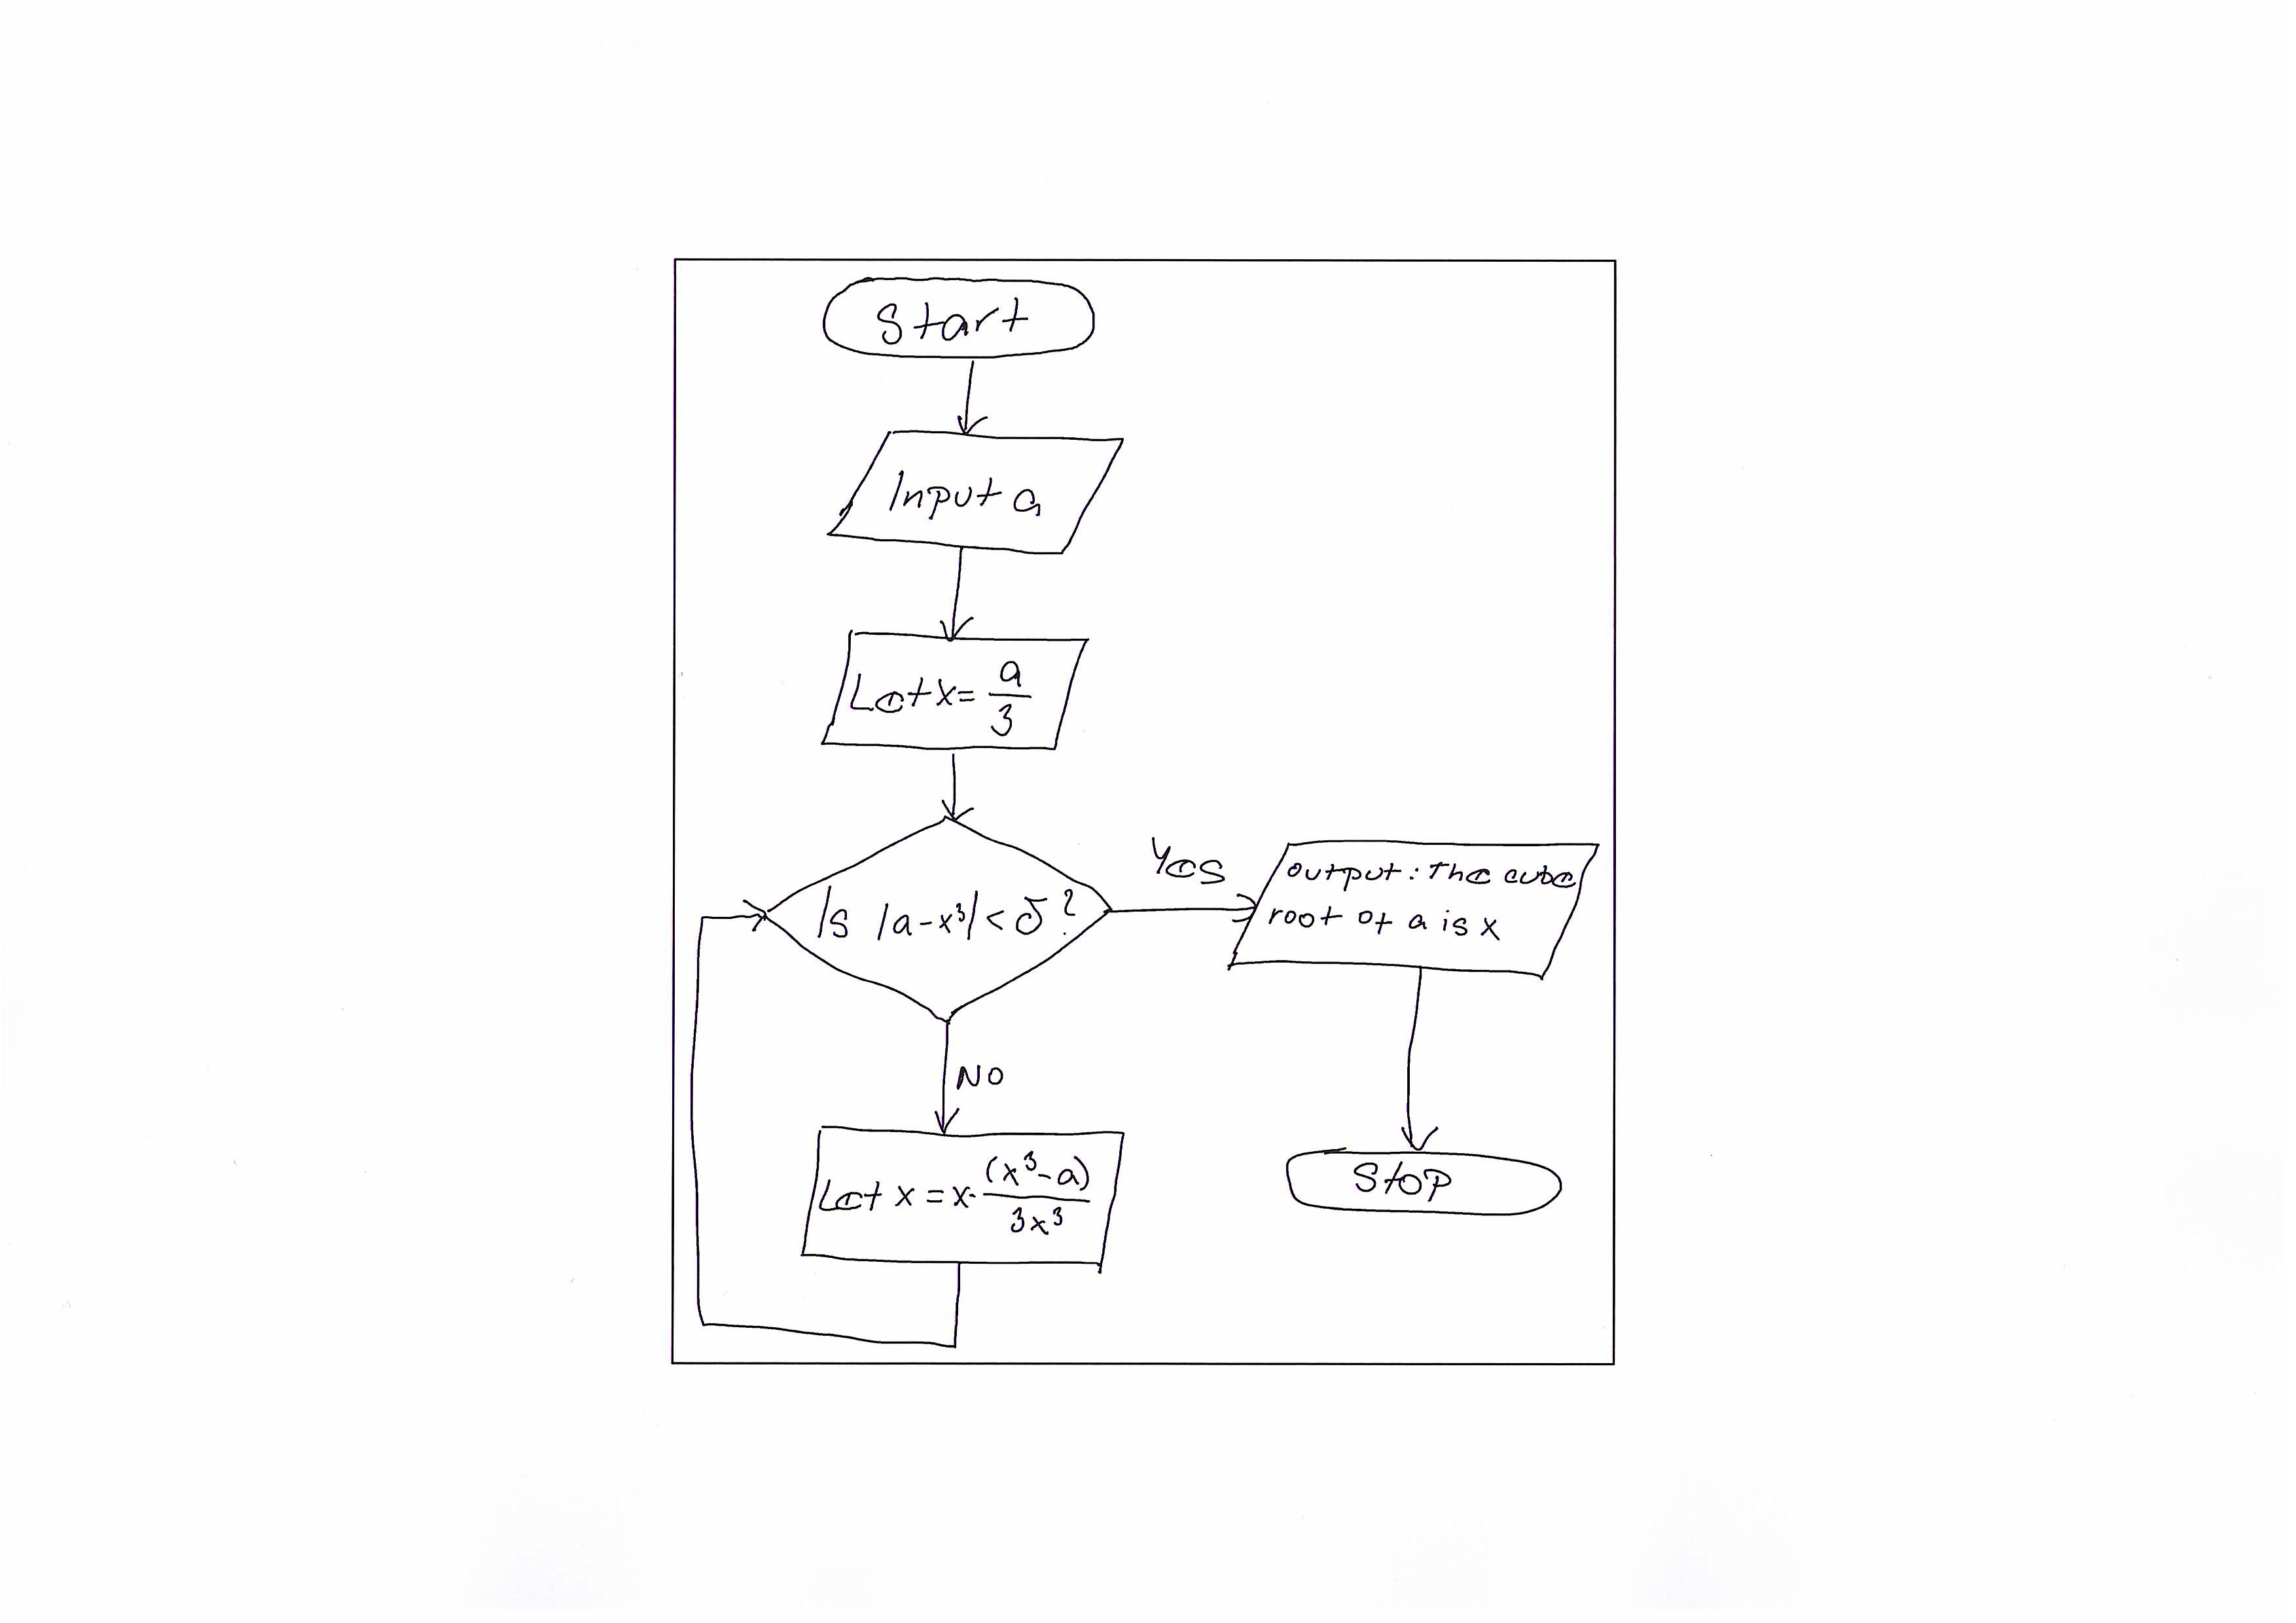 Start
Input a
Let x = a/3
Is |a-x³| < δ ?
Yes
output: The cube
root of a is x
NO
Let x = x - (x³-a)/3x³
Stop